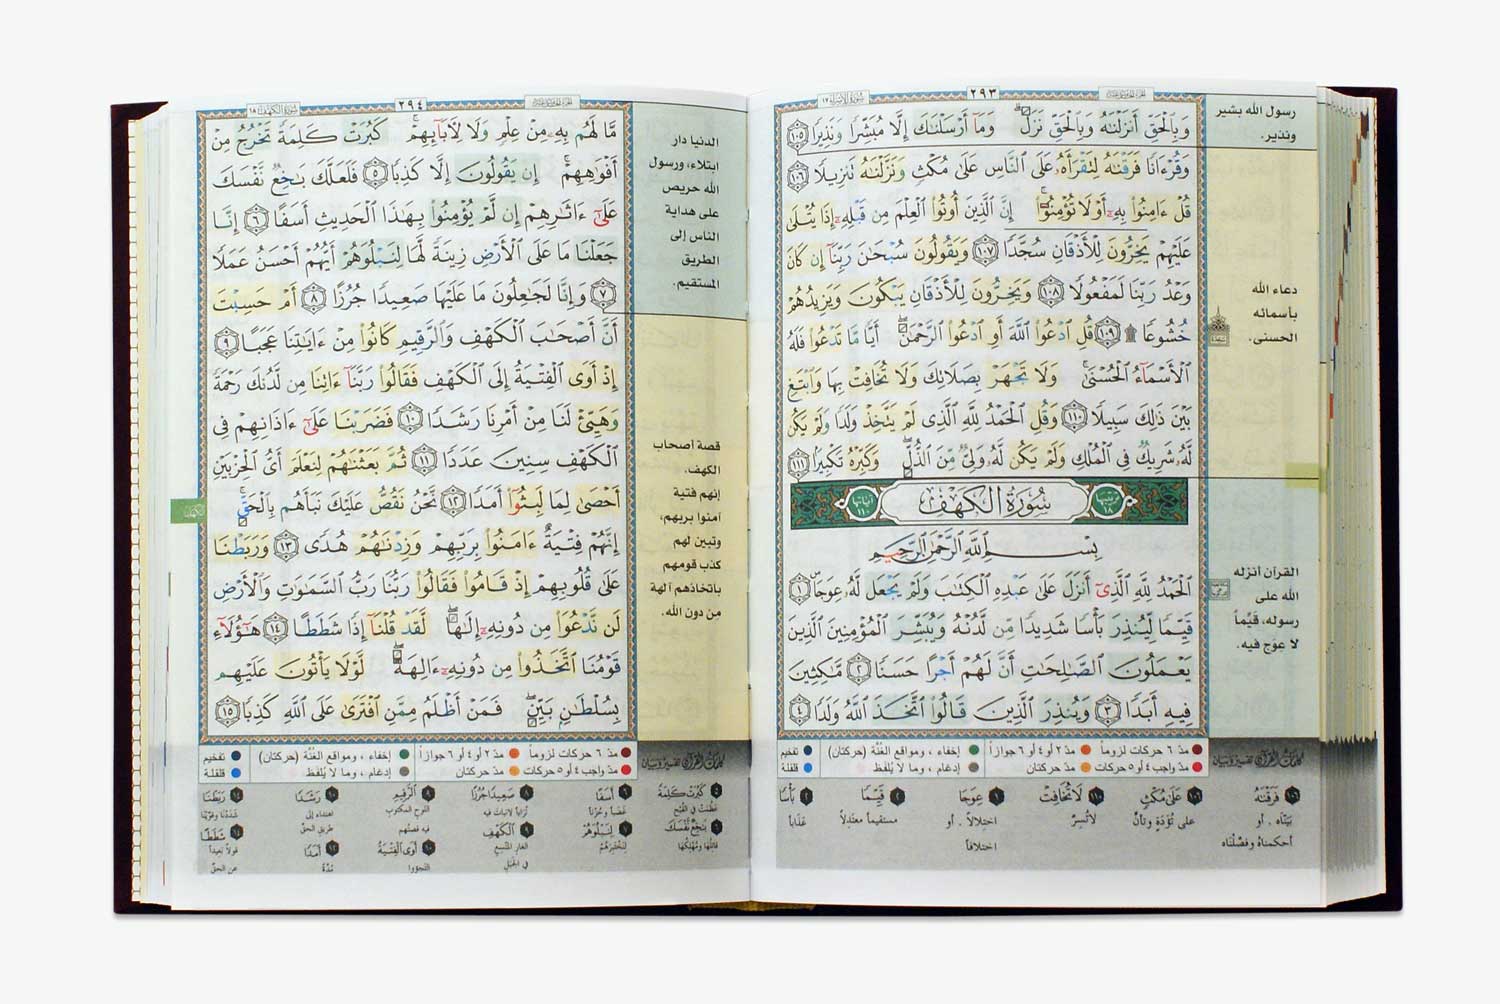 سُورَةُ الإِسْرَاء ١٧
٢٩٣
وَبِالْحَقِّ أَنزَلْنَـٰهُ وَبِالْحَقِّ نَزَلَ ۗ وَمَآ أَرْسَلْنَـٰكَ إِلَّا مُبَشِّرًا وَنَذِيرًا ١٠٥
وَقُرْءَانًا فَرَقْنَـٰهُ لِتَقْرَأَهُۥ عَلَى النَّاسِ عَلَىٰ مُكْثٍ وَنَزَّلْنَـٰهُ تَنزِيلًا ١٠٦
قُلْ ءَامِنُوا۟ بِهِۦٓ أَوْ لَا تُؤْمِنُوٓا۟ ۚ إِنَّ الَّذِينَ أُوتُوا۟ الْعِلْمَ مِن قَبْلِهِۦٓ إِذَا يُتْلَىٰ
عَلَيْهِمْ يَخِرُّونَ لِلْأَذْقَانِ سُجَّدًا ١٠٧ وَيَقُولُونَ سُبْحَـٰنَ رَبِّنَآ إِن كَانَ
وَعْدُ رَبِّنَا لَمَفْعُولًا ١٠٨ وَيَخِرُّونَ لِلْأَذْقَانِ يَبْكُونَ وَيَزِيدُهُمْ
خُشُوعًا ۩ ١٠٩ قُلِ ادْعُوا۟ اللَّهَ أَوِ ادْعُوا۟ الرَّحْمَـٰنَ ۖ أَيًّا مَّا تَدْعُوا۟ فَلَهُ
الْأَسْمَآءُ الْحُسْنَىٰ ۚ وَلَا تَجْهَرْ بِصَلَاتِكَ وَلَا تُخَافِتْ بِهَا وَابْتَغِ
بَيْنَ ذَٰلِكَ سَبِيلًا ١١٠ وَقُلِ الْحَمْدُ لِلَّهِ الَّذِى لَمْ يَتَّخِذْ وَلَدًا وَلَمْ يَكُن
لَّهُۥ شَرِيكٌ فِى الْمُلْكِ وَلَمْ يَكُن لَّهُۥ وَلِىٌّ مِّنَ الذُّلِّ ۖ وَكَبِّرْهُ تَكْبِيرًا ١١١
ترتيبها ١٨
سُورَةُ الْكَهْفِ
آياتها ١١٠
بِسْمِ اللَّهِ الرَّحْمَـٰنِ الرَّحِيمِ
الْحَمْدُ لِلَّهِ الَّذِىٓ أَنزَلَ عَلَىٰ عَبْدِهِ الْكِتَـٰبَ وَلَمْ يَجْعَل لَّهُۥ عِوَجَا ۜ ١
قَيِّمًا لِّيُنذِرَ بَأْسًا شَدِيدًا مِّن لَّدُنْهُ وَيُبَشِّرَ الْمُؤْمِنِينَ الَّذِينَ
يَعْمَلُونَ الصَّـٰلِحَـٰتِ أَنَّ لَهُمْ أَجْرًا حَسَنًا ٢ مَّـٰكِثِينَ
فِيهِ أَبَدًا ٣ وَيُنذِرَ الَّذِينَ قَالُوا۟ اتَّخَذَ اللَّهُ وَلَدًا ٤
رسول الله بشير
ونذير.
دعاء الله
بأسمائه
الحسنى.
القرآن أنزله
الله على
رسوله، قيِّماً
لا عِوج فيه.
مدّ ٦ حركات لزوماً مدّ ٢ أو ٤ أو ٦ جوازاً إخفاء ، ومواقع الغُنّة (حركتان) تفخيم
مدّ واجب ٤ أو ٥ حركات مدّ حركتان إدغام ، وما لا يُلفظ قلقلة
كلمات القرآن تفسير وبيان
١٠٦ فَرَقْنَـٰهُ
بيّناه . أو
أحكمناهُ وفصّلْناه
١٠٦ عَلَىٰ مُكْثٍ
على تُؤَدَةٍ وتأنٍّ
١١٠ لَا تُخَافِتْ
لا تُسِرَّ
١ عِوَجَا
اختلالاً . أو
اختلافاً
٢ قَيِّمًا
مستقيماً معتدِلاً
٢ بَأْسًا
عَذَاباً
سُورَةُ الكَهْف ١٨
٢٩٤
مَّا لَهُم بِهِۦ مِنْ عِلْمٍ وَلَا لِـَٔابَآئِهِمْ ۚ كَبُرَتْ كَلِمَةً تَخْرُجُ مِنْ
أَفْوَٰهِهِمْ ۚ إِن يَقُولُونَ إِلَّا كَذِبًا ٥ فَلَعَلَّكَ بَـٰخِعٌ نَّفْسَكَ
عَلَىٰٓ ءَاثَـٰرِهِمْ إِن لَّمْ يُؤْمِنُوا۟ بِهَـٰذَا الْحَدِيثِ أَسَفًا ٦ إِنَّا
جَعَلْنَا مَا عَلَى الْأَرْضِ زِينَةً لَّهَا لِنَبْلُوَهُمْ أَيُّهُمْ أَحْسَنُ عَمَلًا
٧ وَإِنَّا لَجَـٰعِلُونَ مَا عَلَيْهَا صَعِيدًا جُرُزًا ٨ أَمْ حَسِبْتَ
أَنَّ أَصْحَـٰبَ الْكَهْفِ وَالرَّقِيمِ كَانُوا۟ مِنْ ءَايَـٰتِنَا عَجَبًا ٩
إِذْ أَوَى الْفِتْيَةُ إِلَى الْكَهْفِ فَقَالُوا۟ رَبَّنَآ ءَاتِنَا مِن لَّدُنكَ رَحْمَةً
وَهَيِّئْ لَنَا مِنْ أَمْرِنَا رَشَدًا ١٠ فَضَرَبْنَا عَلَىٰٓ ءَاذَانِهِمْ فِى
الْكَهْفِ سِنِينَ عَدَدًا ١١ ثُمَّ بَعَثْنَـٰهُمْ لِنَعْلَمَ أَىُّ الْحِزْبَيْنِ
أَحْصَىٰ لِمَا لَبِثُوٓا۟ أَمَدًا ١٢ نَّحْنُ نَقُصُّ عَلَيْكَ نَبَأَهُم بِالْحَقِّ ۚ
إِنَّهُمْ فِتْيَةٌ ءَامَنُوا۟ بِرَبِّهِمْ وَزِدْنَـٰهُمْ هُدًى ١٣ وَرَبَطْنَا
عَلَىٰ قُلُوبِهِمْ إِذْ قَامُوا۟ فَقَالُوا۟ رَبُّنَا رَبُّ السَّمَـٰوَٰتِ وَالْأَرْضِ
لَن نَّدْعُوَا۟ مِن دُونِهِۦٓ إِلَـٰهًا ۖ لَّقَدْ قُلْنَآ إِذًا شَطَطًا ١٤ هَـٰٓؤُلَآءِ
قَوْمُنَا اتَّخَذُوا۟ مِن دُونِهِۦٓ ءَالِهَةً ۖ لَّوْلَا يَأْتُونَ عَلَيْهِم
بِسُلْطَـٰنٍۭ بَيِّنٍ ۖ فَمَنْ أَظْلَمُ مِمَّنِ افْتَرَىٰ عَلَى اللَّهِ كَذِبًا ١٥
الدنيا دار
ابتلاء، ورسول
الله حريص
على هداية
الناس إلى
الطريق
المستقيم.
قصة أصحاب
الكهف.
إنهم فتية
آمنوا بربهم،
وتبين لهم
كذب قومهم
باتخاذهم آلهة
من دون الله.
مدّ ٦ حركات لزوماً مدّ ٢ أو ٤ أو ٦ جوازاً إخفاء ، ومواقع الغُنّة (حركتان) تفخيم
مدّ واجب ٤ أو ٥ حركات مدّ حركتان إدغام ، وما لا يُلفظ قلقلة
كلمات القرآن تفسير وبيان
٥ كَبُرَتْ كَلِمَةً
عظُمت في القُبح
٦ بَـٰخِعٌ نَّفْسَكَ
قاتلُها ومُهلِكُها
٦ أَسَفًا
غضباً وحُزناً
٧ لِنَبْلُوَهُمْ
لنختبرَهُمْ
٨ صَعِيدًا جُرُزًا
تراباً لا نبات فيه
٩ الْكَهْفِ
الغار المتّسِع
في الجبل
٩ الرَّقِيمِ
اللوح المكتوب
فيه قصتُهم
١٠ أَوَى الْفِتْيَةُ
التجؤوا
١٠ رَشَدًا
اهتداء إلى
طريق الحقّ
١٢ أَمَدًا
مُدّةً
١٤ رَبَطْنَا
شَدَدْنا وقوّينا
١٤ شَطَطًا
قولاً بَعيداً
عن الحقّ
الكهف